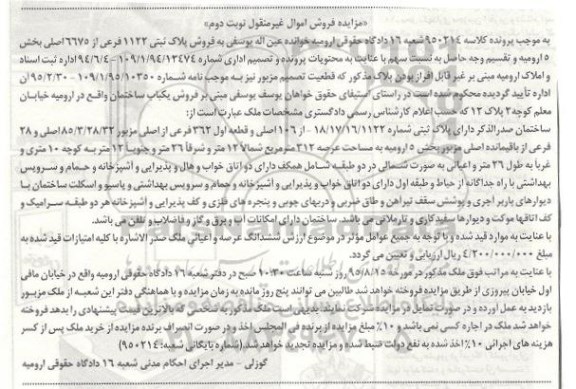 «مزایده فروش اموال غیرمنقول نوبت دوم»
به موجب پرونده کلاسه ۹۵۰۲۱۴شعبه ۱۶ دادگاه حقوقی ارومیه خوانده عین اله یوسفی به فروش پلاک ثبتی ۱۱۲۲ فرعی از ۶۶۷۵اصلی بخش
۵ ارومیه و تقسیم وجه حاصل به نسبت سهم با عنایت به محتویات پرونده و تصمیم اداری شماره ۱۰۹/۱/۹۴/۱۳۴۷۴ - ۹۴/۶/۴ اداره ثبت اسناد
و املاک ارومیه مبنی بر غیر قابل افراز بودن پلاک مذکور که قطعیت تصمیم مزبور نیز به موجب نامه شماره ۱۰۹/۱/۹۵/۱۰۳۵۰ - ۹۵/۲/۳۰ آن
اداره تأیید گردیده محکوم شده است در راستای استیفای حقوق خواهان یوسف یوسفی مبنی بر فروش یکباب ساختمان واقع در ارومیه خیابان
معلم کوچه۲ پلاک ۱۲ که حسب اعلام کارشناس رسمی دادگستری مشخصات ملک عبارت است از:
ساختمان صدرالذکر دارای پلاک ثبتی شماره ۱۸/۱۷/۱۶/۱۱۲۲ - از ۱۰۶ اصلی و قطعه اول ۳۶۲ فرعی از اصلی مزبور ۸۵/۳/۲۸/۳۲ اصلی و ۲۸
فرعی از باقیمانده اصلی مزبور بخش ۵ ارومیه به مساحت عرصه ۳۱۲ مترمربع شمالا ۱۲ متر و شرقا ۲۶ متر و جنوبا ۱۲ متر به کوچه ۱۰ متری و
غربا به طول ۲۶ متر و اعیانی به صورت شمالی در دو طبقه شامل همکف دارای دو اتاق خواب و هال و پذیرایی و آشپزخانه و حمام و سرویس
بهداشتی با راه جداگانه از حیاط و طبقه اول دارای دو اتاق خواب و پذیرایی و آشپزخانه و حمام و سرویس بهداشتی و پاسیو و اسکلت ساختمان با
دیوارهای باربر آجری و پوشش سقف تیرآهن و طاق ضربی و دربهای چوبی و پنجره های فلزی و کف پذیرایی و آشپزخانه هر دو طبقه سرامیک و
کف اتاقها موکت و دیوارها سفیدکاری و تا رملاتی می باشد. ساختمان دارای امکانات آب و برق و گاز و فاضلاب و تلفن می باشد.
با عنایت به موارد قید شده و با توجه به جمیع عوامل مؤثر در موضوع ارزش ششدانگ عرصه و اعیانی ملک صدر الاشاره با کلیه امتیازات قید شده به
مبلغ ۴/۲۰۰/۰۰۰/۰۰۰ ریال ارزیابی و تعیین می گردد.
با عنایت به مراتب فوق ملک مذکور در مورخه ۹۵/۸/۱۵ روز شنبه ساعت ۱۰:۳۰ صبح در دفتر شعبه ۱۶ دادگاه حقوقی ارومیه واقع در خیابان مافی
اول خیابان پیروزی از طریق مزایده فروخته خواهد شد طالبین می توانند پنج روز مانده به زمان مزایده و با هماهنگی دفتر این شعبه از ملک مزبور
بازدید به عمل آورده و در صورت تمایل در مزایده شرکت نمایند بدیهی است ملک مذکور به شخصی که بالاترین قیمت پیشنهادی را بدهد فروخته
خواهد شد ملک در اجاره کسی نمی باشد و ۱۰٪ مبلغ مزایده از برنده فی المجلس اخذ و در صورت انصراف برنده مزایده از خرید ملک پس از کسر
هزینه های اجرائی ۱۰٪ اخذ شده به نفع دولت ضبط شده و مزایده تجدید خواهد شد.(شماره بایگانی شعبه: ۹۵۰۲۱۴)
گوزلی - مدیر اجرای احکام مدنی شعبه ۱۶ دادگاه حقوقی ارومیه